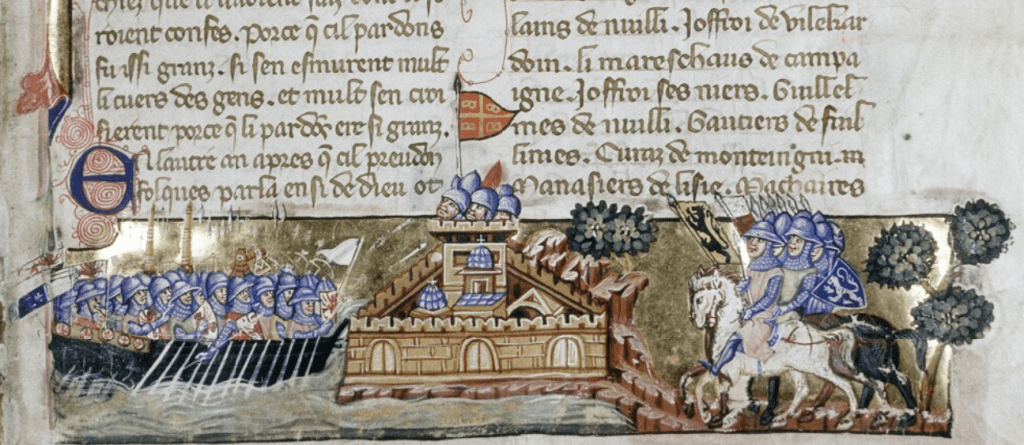 roient confes. Porce q̃ cil pardons
fu issi granz. si sen esmurent mult
li cuers des gens. et mult sen croi
sierent porce q̃ li pardõs ere si granz.
En lautre an apres q̃ cil preudon
folques parla ensi de dieu ot
lains de nuilli. Joffroi de vilehar
doin. li mareschaus de campa
igne. Joffroi ses niers. Guillel
mes de nuilli. Gautiers de fiul
limes. Curaz de monteingni.
Manasiers de lisie. Machaires